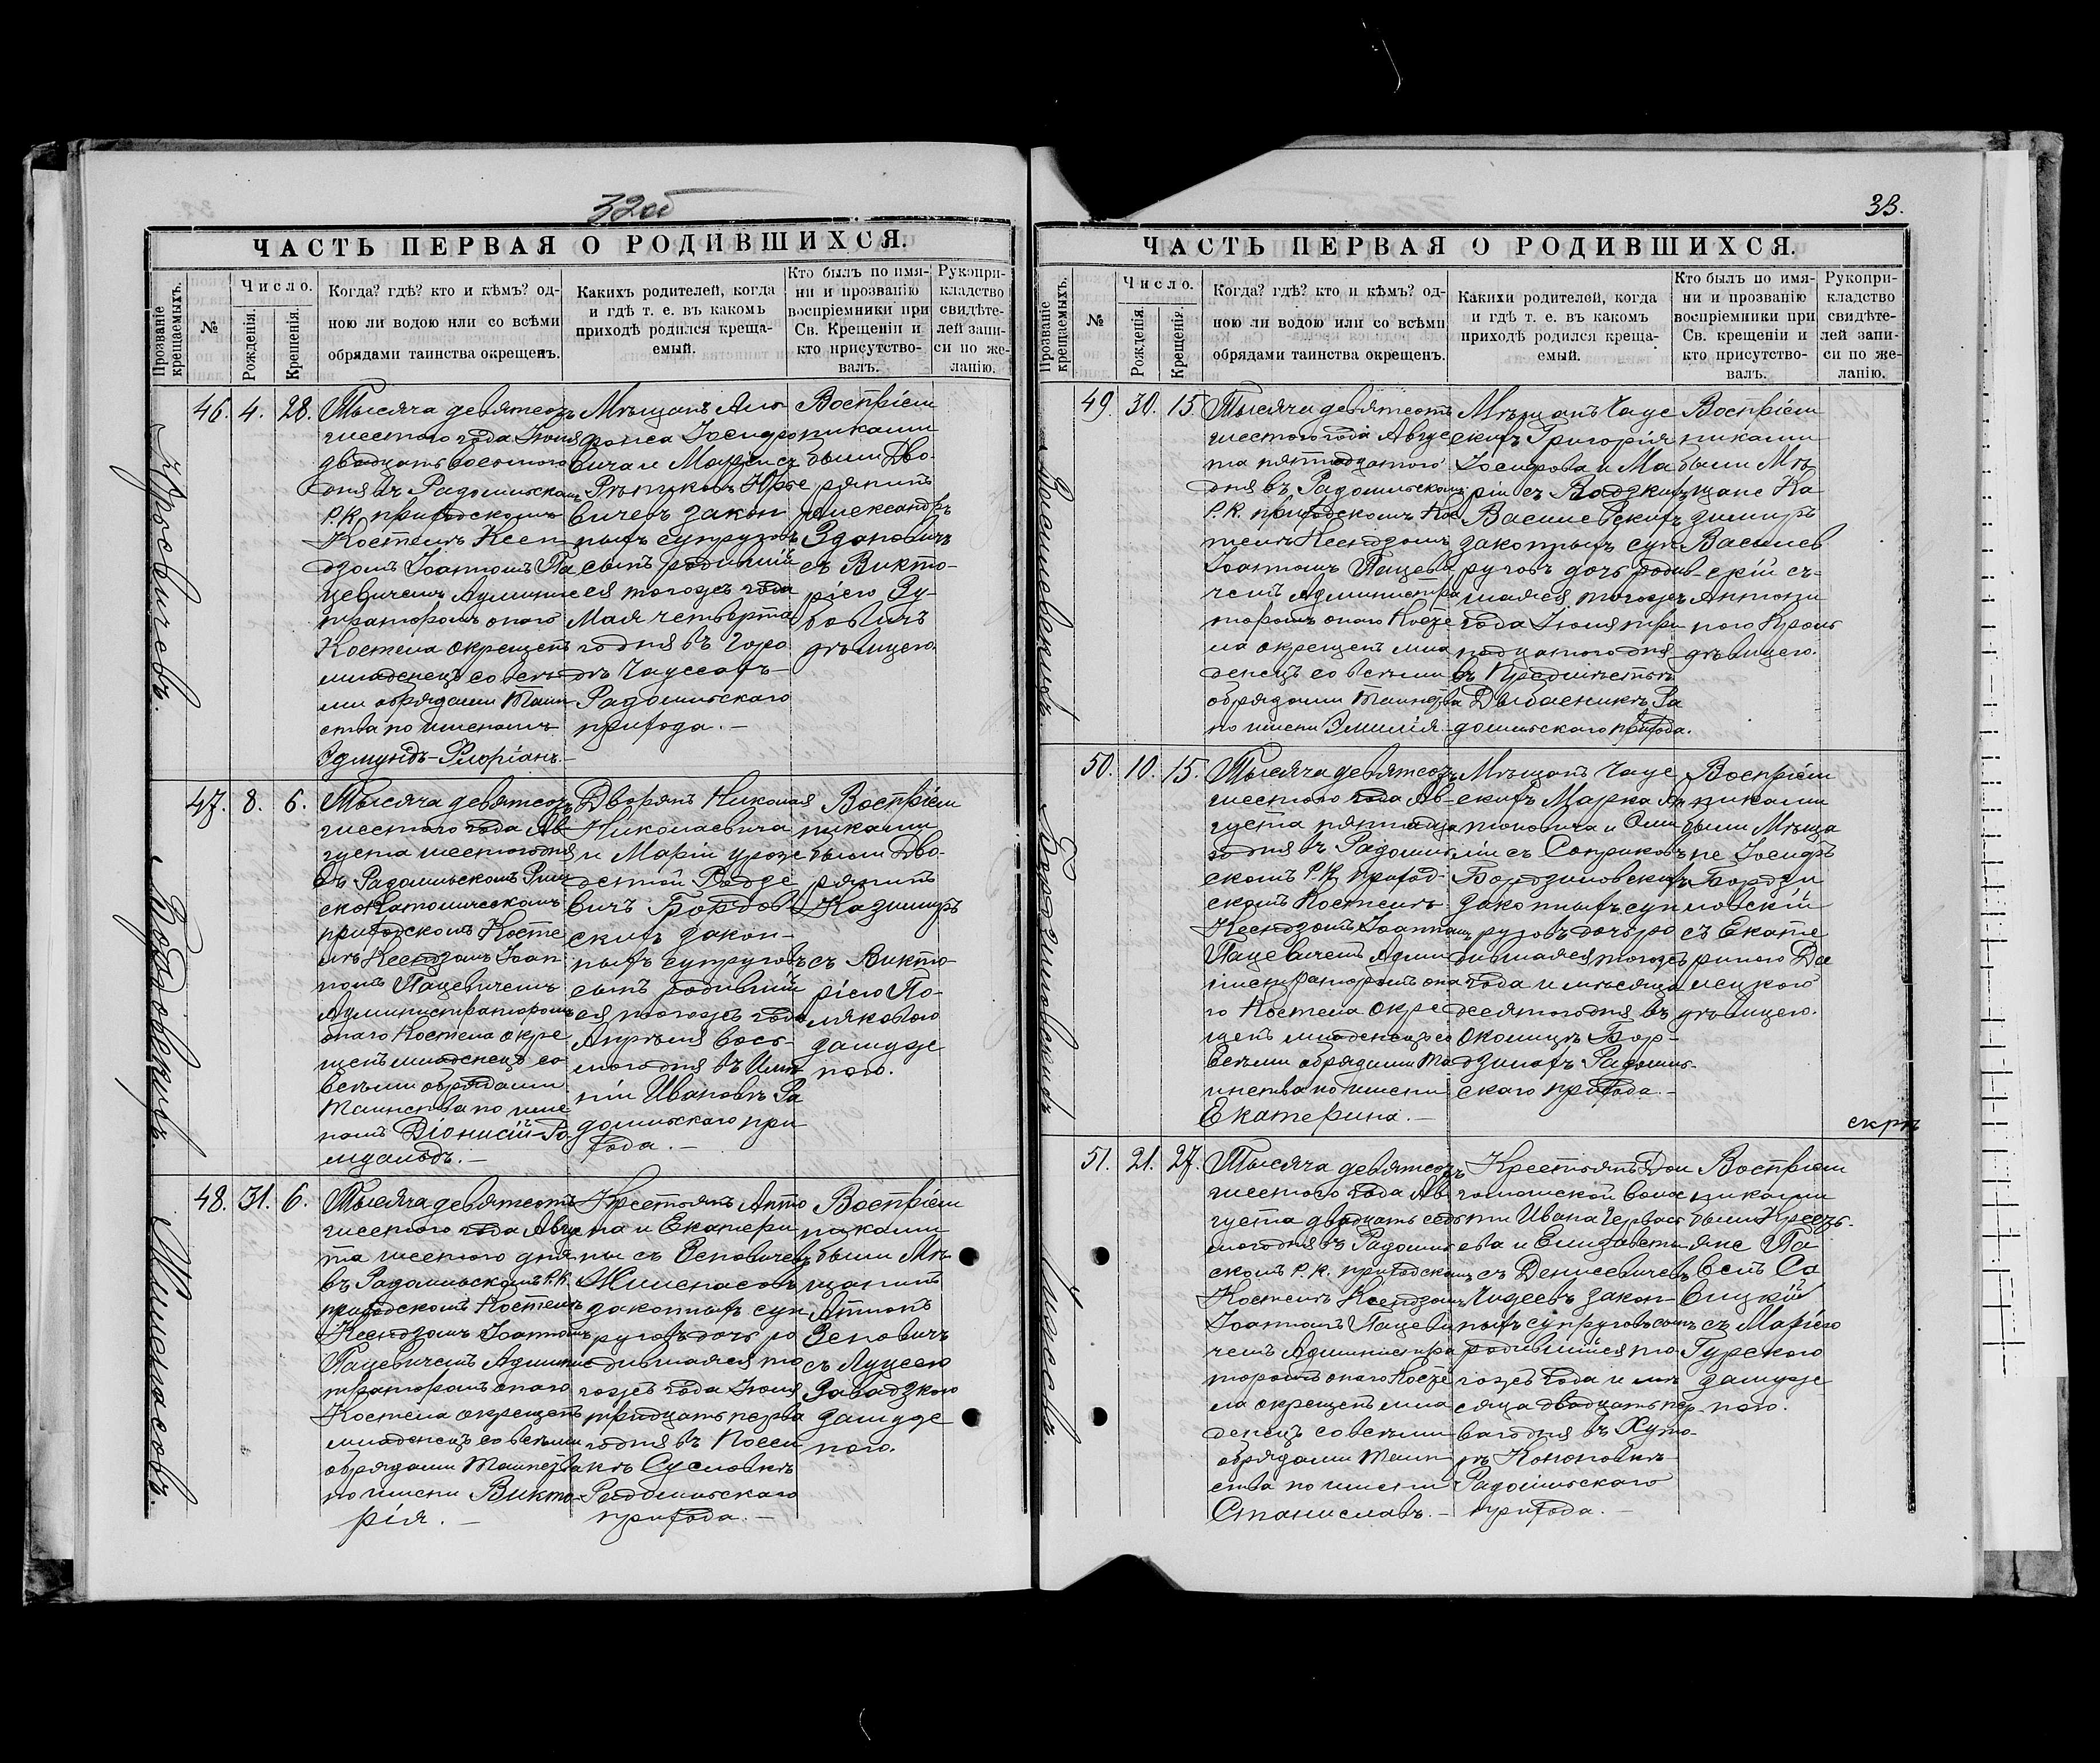 32об
ЧАСТЬ ПЕРВАЯ О РОДИВШИХСЯ.
Прозваніе крещаемыхъ.
№
Число.
Рожденія.
Крещенія.
Когда? гдѣ? кто и кѣмъ? од-
ною ли водою или со всѣми
обрядами таинства окрещенъ.
Какихъ родителей, когда
и гдѣ т. е. въ какомъ
приходѣ родился креща-
емый.
Кто былъ по имя-
ни и прозванію
воспріемники при
Св. Крещеніи и
кто присутство-
валъ.
Рукопри-
кладство
свидѣте-
лей запи-
си по же-
ланію.
46. 4. 28.
Тысяча девятсотъ
шестого года Іюня
двадцать восьмого
дня въ Радомльскомъ
Р. К. приходскомъ
Костелѣ Ксен-
дзомъ Іоанномъ Па
цевичемъ Админис
траторомъ оного
Костела окрещенъ
младенецъ со всѣ-
ми обрядами Таин
ства по именомъ
Эдмундъ-Флоріанъ.-
Мѣщанъ Аль
фонса Іосифо
вича и Маріи съ
Рѣпиковъ Юрье
вичевъ закон
ныхъ супруговъ
сынъ родившій
ся тогожъ года
Мая четверта
го дня въ горо
дѣ Чаусахъ-
Радомльскаго
прихода.-
Воспріем
никами
были Дво-
рянинъ
Александръ
Здановичъ
съ Викто-
ріею Зу-
бовичъ
дѣвицею.
47. 8. 6.
Бордовскихъ
Тысяча девятсотъ
шестого года Ав-
густа шестого дня
въ Радомльскомъ Рим
ско Католическомъ
приходскомъ Косте
лѣ Ксендзомъ Іоан
номъ Пацевичемъ
Администраторомъ
онаго Костела окре
щенъ младенецъ со
всѣми обрядами
Таинства по име
намъ Діонисій-Ро-
муальдъ.-
Дворянъ Николая
Николаевича
и Маріи урож
денной Родзе
вичъ Бордов
скихъ закон-
ныхъ супруговъ
сынъ родившій
ся тогожъ года
Апрѣля вось-
мого дня въ Имѣ
ніи Ивановъ Ра
домльскаго при
хода.-
Воспріем
никами
были Дво-
рянинъ
Казимиръ
съ Викто-
ріею По-
ляковою
замуж
ною.
48. 31. 6.
Тысяча девятсотъ
шестого года Авгус
та шестого дня
въ Радомльскомъ Р. К.
приходскомъ Костелѣ
Ксендзомъ Іоанномъ
Пацевичемъ Админис
траторомъ онаго
Костела окрещенъ
младенецъ со всѣми
обрядами Таинства
по имени Викто-
рія.-
Крестьянъ Анто
на и Екатери
ны съ Зеновичевъ
закон­ныхъ суп-
руговъ дочь ро
дившаяся то
гожъ года Іюля
тридцать перва
го дня въ Посел
кѣ Сусловкѣ
Радомльскаго
прихода.-
Воспріем
никами
были Мѣ
щанинъ
Антонъ
Зеновичъ
съ Луцеею
Завадзкою
замуж
ною.
33.
ЧАСТЬ ПЕРВАЯ О РОДИВШИХСЯ.
Прозваніе крещаемыхъ.
№
Число.
Рожденія.
Крещенія.
Когда? гдѣ? кто и кѣмъ? од-
ною ли водою или со всѣми
обрядами таинства окрещенъ.
Какихи родителей, когда
и гдѣ т. е. въ какомъ
приходѣ родился креща-
емый.
Кто былъ по имя-
ни и прозванію
воспріемники при
Св. крещеніи и
кто присутство-
валъ.
Рукопри-
кладство
свидѣте-
лей запи-
си по же-
ланію.
49. 30. 15.
Василевскихъ
Тысяча девятсотъ
шестого года Авгус
та пятнадцатого
дня въ Радомльскомъ
Р. К. приходскомъ Кос
телѣ Ксендзомъ
Іоанномъ Пацеви
чемъ Администра
торомъ онаго Косте
ла окрещенъ мла
денецъ со всѣми
обрядами Таинства
по имени Эмилія.-
Мѣщанъ Чаус
скихъ Григорія
Іосифова и Ма
ріи съ Родзкихъ
Василевскихъ
законныхъ суп
руговъ дочь родив-
шаяся тогожъ
года Іюля три
дцатого дня
въ Предмѣстьѣ
Ра
домльскаго прихода.
Воспріем
никами
были Мѣ
щане Ка
зимиръ
Василев
скій съ-
Антони
ною Кроль
дѣвицею.
50. 10. 15.
Бордзиловскихъ
Тысяча девятсотъ
шестого года Ав-
густа пятнадца
го дня въ Радомль
скомъ Р. К. приход-
скомъ Костелѣ
Ксендзомъ Іоанномъ
Пацевичемъ Адми
нистраторомъ она
го Костела окре
щенъ младенецъ со
всѣми обрядами Та
инства по имени
Екатерина.-
Мѣщанъ Чаус
скихъ Марка Ан
тоновича и Эми
ліи съ Соприковъ
Бордзиловскихъ
законныхъ суп
руговъ дочь ро
дившаяся тогожъ
года и мѣсяца
десятого дня въ
околицѣ Бор-
дзилахъ Радомль-
скаго прихода.-
Воспріем
никами
были Мѣща
не Іосифъ
Бордзи
ловскій
съ Екате
риною
дѣвицею.
скрѣ
51. 21. 27.
Тысяча девятсотъ
шестого года Ав
густа двадцать седь
мого дня въ Радомль
скомъ Р. К. приходскомъ
Костелѣ Ксендзомъ
Іоанномъ Пацеви
чемъ Администра
торомъ онаго Косте
ла окрещенъ мла
денецъ со всѣми
обрядами Таин
ства по имени
Станиславъ.-
Крестьянъ Дол
гомошской волос
ти Ивана Червась
ева и Елизаветы
съ Денисевичевъ
закон-
ныхъ супруговъ сынъ
родившійся то
гожъ года и мѣ
сяца двадцать пер-
ваго дня въ Хуто-
рѣ Кононовкѣ-
Радомльскаго
прихода.-
Воспріем
никами
были Кресть-
яне Па
велъ Са
вицкій
съ Маріею
Гурскою
замуж
ною.